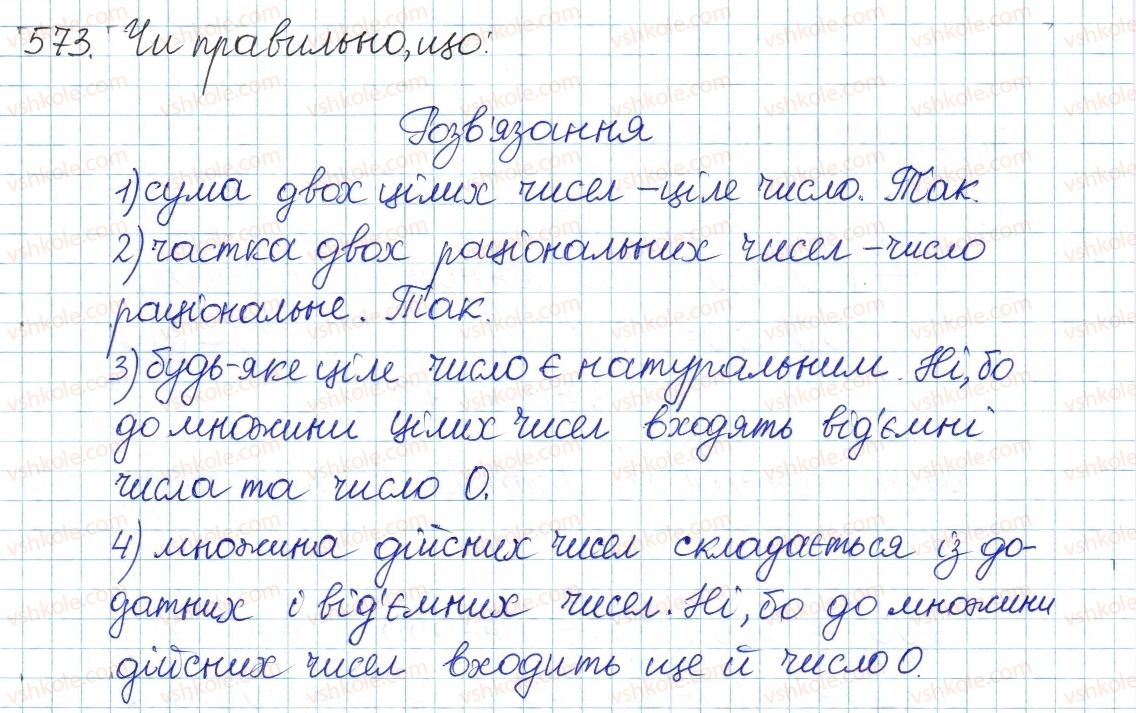 573. Чи правильно, що:
Розв'язання
1) сума двох цілих чисел – ціле число. Так.
2) частка двох раціональних чисел – число
раціональне. Так.
3) будь-яке ціле число є натуральним. Ні, бо
до множини цілих чисел входять від'ємні
числа та число 0.
4) множина дійсних чисел складається із до-
датних і від'ємних чисел. Ні, бо до множини
дійсних чисел входить ще й число 0.